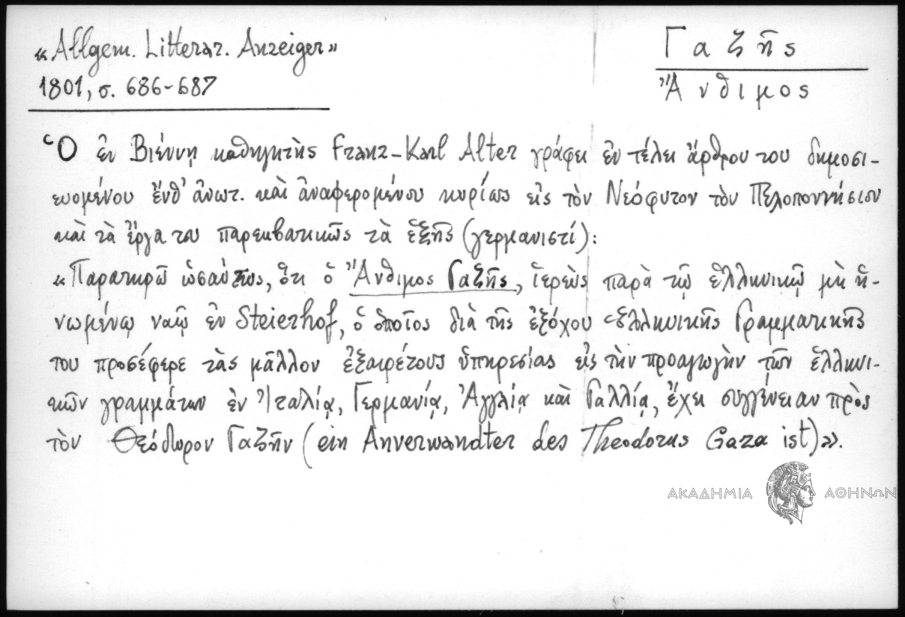 «Allgem. Litterar. Anzeiger»
1801, σ. 686-687
Γαζῆς
Ἄνθιμος
Ὁ ἐν Βιέννῃ καθηγητὴς Franz-Karl Alter γράφει ἐν τέλει ἄρθρου του δημοσι-
ευομένου ἔνθ' ἀνωτ. καὶ ἀναφερομένου κυρίως εἰς τὸν Νεόφυτον τὸν Πελοποννήσιον
καὶ τὰ ἔργα του παρεκβατικῶς τὰ ἑξῆς (γερμανιστί):
«Παρατηρῶ ὡσαύτως, ὅτι ὁ Ἄνθιμος Γαζῆς, ἱερεὺς παρὰ τῷ ἑλληνικῷ μὴ ἡ-
νωμένῳ ναῷ ἐν Steierhof, ὁ ὁποῖος διὰ τῆς ἐξόχου Ἑλληνικῆς Γραμματικῆς
του προσέφερε τὰς μᾶλλον ἐξαιρέτους ὑπηρεσίας εἰς τὴν προαγωγὴν τῶν ἑλληνι-
κῶν γραμμάτων ἐν Ἰταλίᾳ, Γερμανίᾳ, Ἀγγλίᾳ καὶ Γαλλίᾳ, ἔχει συγγένειαν πρὸς
τὸν Θεόδωρον Γαζῆν (ein Anverwandter des Theodorus Gaza ist)».
ΑΚΑΔΗΜΙΑ ΑΘΗΝΩΝ